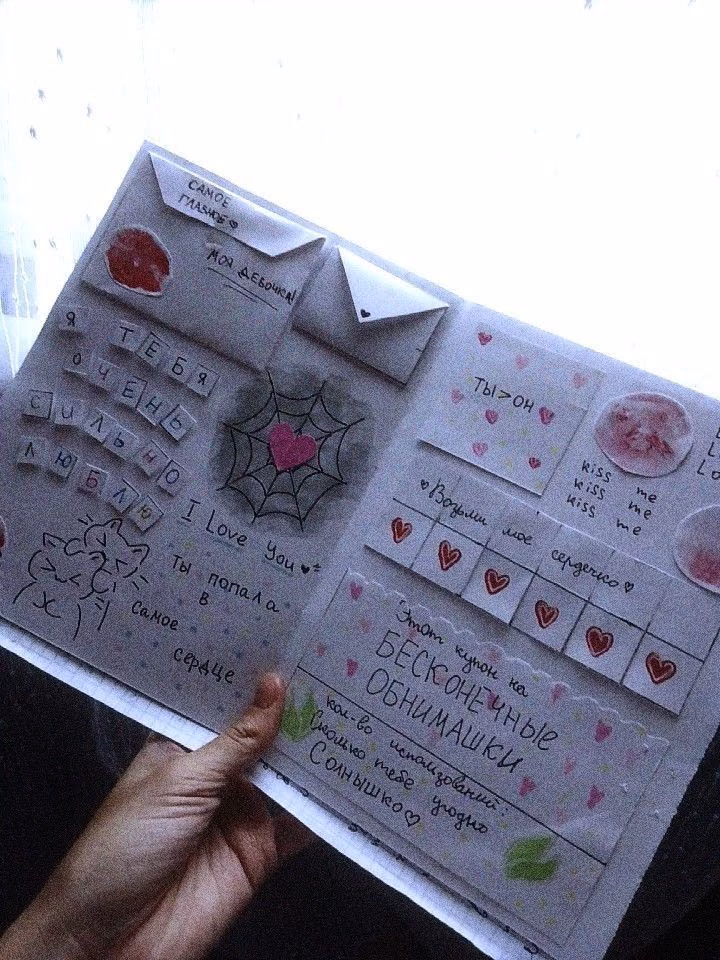 САМОЕ
ГЛАВНОЕ
МОЯ ДЕВОЧКА!
Я ТЕБЯ
ОЧЕНЬ
СИЛЬНО
ЛЮБЛЮ
I Love You
ты попала
в
самое
сердце
ТЫ>ОН
kiss me
kiss me
kiss me
Возьми моё сердечко
Этот купон на
БЕСКОНЕЧНЫЕ
ОБНИМАШКИ
кол-во использований:
Сколько тебе угодно
Солнышко